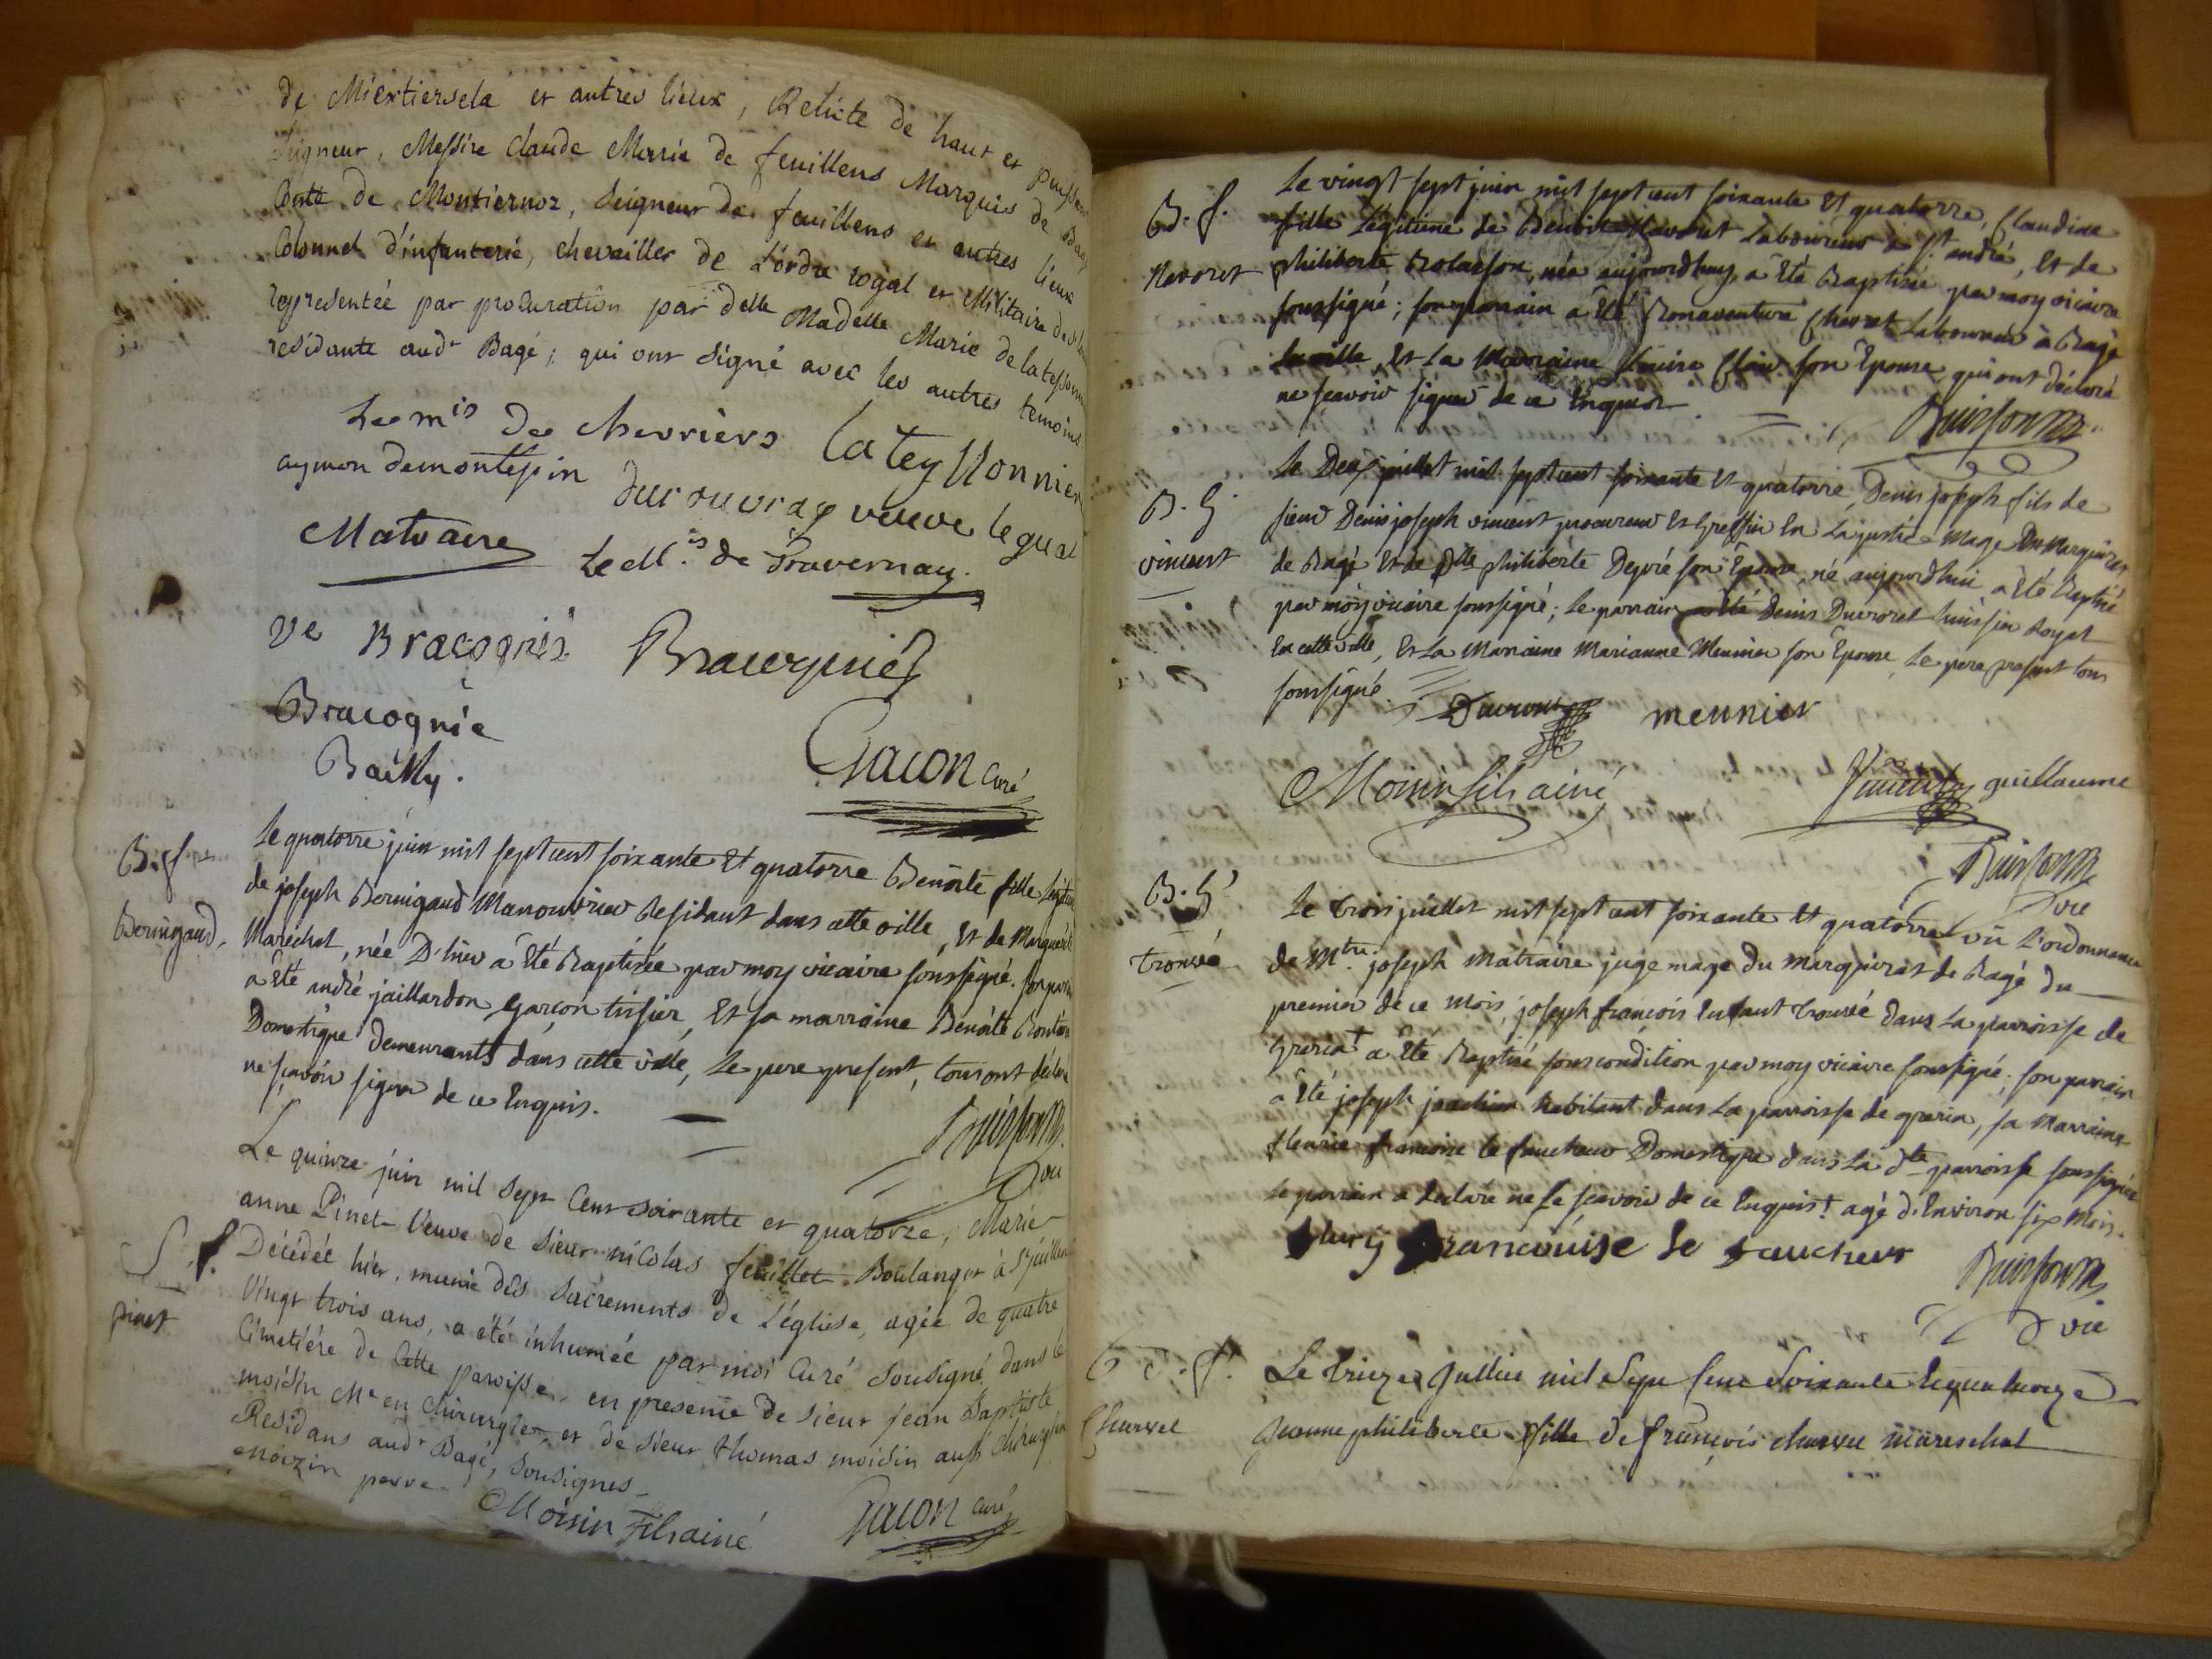 de Miextiersela et autres lieux, Relicte de haut et puissant
Seigneur, Messire Claude Marie de feuillens Marquis de Bagé
Conte de Montiernoz, Seigneur de feuillens et autres lieux
Colonnel d'infanterie, chevailler de L'ordre royal et Militaire de
representée par procuration par delle Madelle Marie de lateyssonn
residante audt Bagé; qui ont signé avec les autres temoins
Le mis de chevriers lateyssonnier
aymon demontespin durouvray veuve leguat
Matraire Le M.is de Travernay.
ve Bracognié Bracognié
Bracognié
Bailly. Gacon Curé
B. f.
Bernigaud,
Le quatorze juin mil sept cent soixante Et quatorze Benoîte fille legitime
de joseph Bernigaud Manouvrier Residant dans cette ville, Et de Marguerite
Maréchal, née D'hier a Eté Baptisée par moy vicaire soussigné. son parrain
a Eté andré jaillardon, garçon tissier, Et sa marraine Benoîte
Domestique Demeurants dans cette ville, Le pere present, tous ont declaré
ne sçavoir signer de ce Enquis.
Buisson
vic
S. f.
pinet
Le quinze juin mil Sept Cent soixante et quatorze, Marie
anne Pinet Veuve de Sieur nicolas feuillet Boulanger à St juillien
Décédée hier, munie des Sacrements de L'église, agée de quatre
Vingt trois ans, a été inhumée par moi Curé Sousigné dans le
Cimetiére de Cette paroisse, en presence de Sieur jean Baptiste
moisin Me en Chirurgie, et de Sieur thomas moisin aussi chirurgien
Residans audt Bagé, Sousignes
Moizin perre Moisin fils ainé Gacon Curé
B. f.
Nevoret
Le vingt sept juin mil sept cent soixante Et quatorze, Claudine
fille Légitime de Benoît Navoret Laboureur à St. andré, Et de
philiberte, née aujourdhuy, a Eté Baptisée par moy vicaire
soussigné; son parrain a Eté Bonaventure Chevret Laboureur à Bagé
la ville, Et La Marraine Claire son Epouse, qui ont déclaré
ne sçavoir signer de ce Enquis.
Buisson
B. G
vincent
Le Deux juillet mil sept cent soixante Et quatorze, Denis joseph fils de
sieur Denis joseph vincent procureur Et Greffier En La justice Mage Du Marquisat
de Bagé Et de Dlle philiberte Depré son Epouse, né aujourdhui a Eté Baptisé
par moy vicaire soussigné; Le parrain a Eté Denis Duvoret huissier Royal
En cette ville, Et La Marraine Marianne Meunier son Epouse, Le pere present tous
soussigné.
Duvoret meunier
Moisin fils ainé Vincent guillaume
Buisson
vic
B. G
trouvé
Le trois juillet mil sept cent soixante Et quatorze vû L'ordonnance
de Mtre. joseph Matraire juge mage Du Marquisat de Bagé du
premier de ce Mois, joseph françois Enfant trouvé dans La parroisse de
a Eté Baptisé sous condition par moy vicaire soussigné; son parrain
a Eté joseph joachim habitant dans La parroisse de, sa Marraine
fleurie francoise le faucheur Domestique dans La dte parroisse soussignée
Le parrain a declaré ne Le sçavoir de ce Enquis! agé d'Environ six Mois.
fleury francouise le faucheur
Buisson
vic
f.
Charvet
Le treize Juillet mil Sept Cent Soixante Et quatorze
Jeanne philiberte fille de françois charvet mareschal